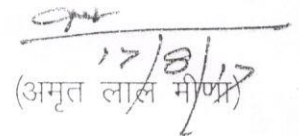 17/8/17
(अमृत लाल मीणा)